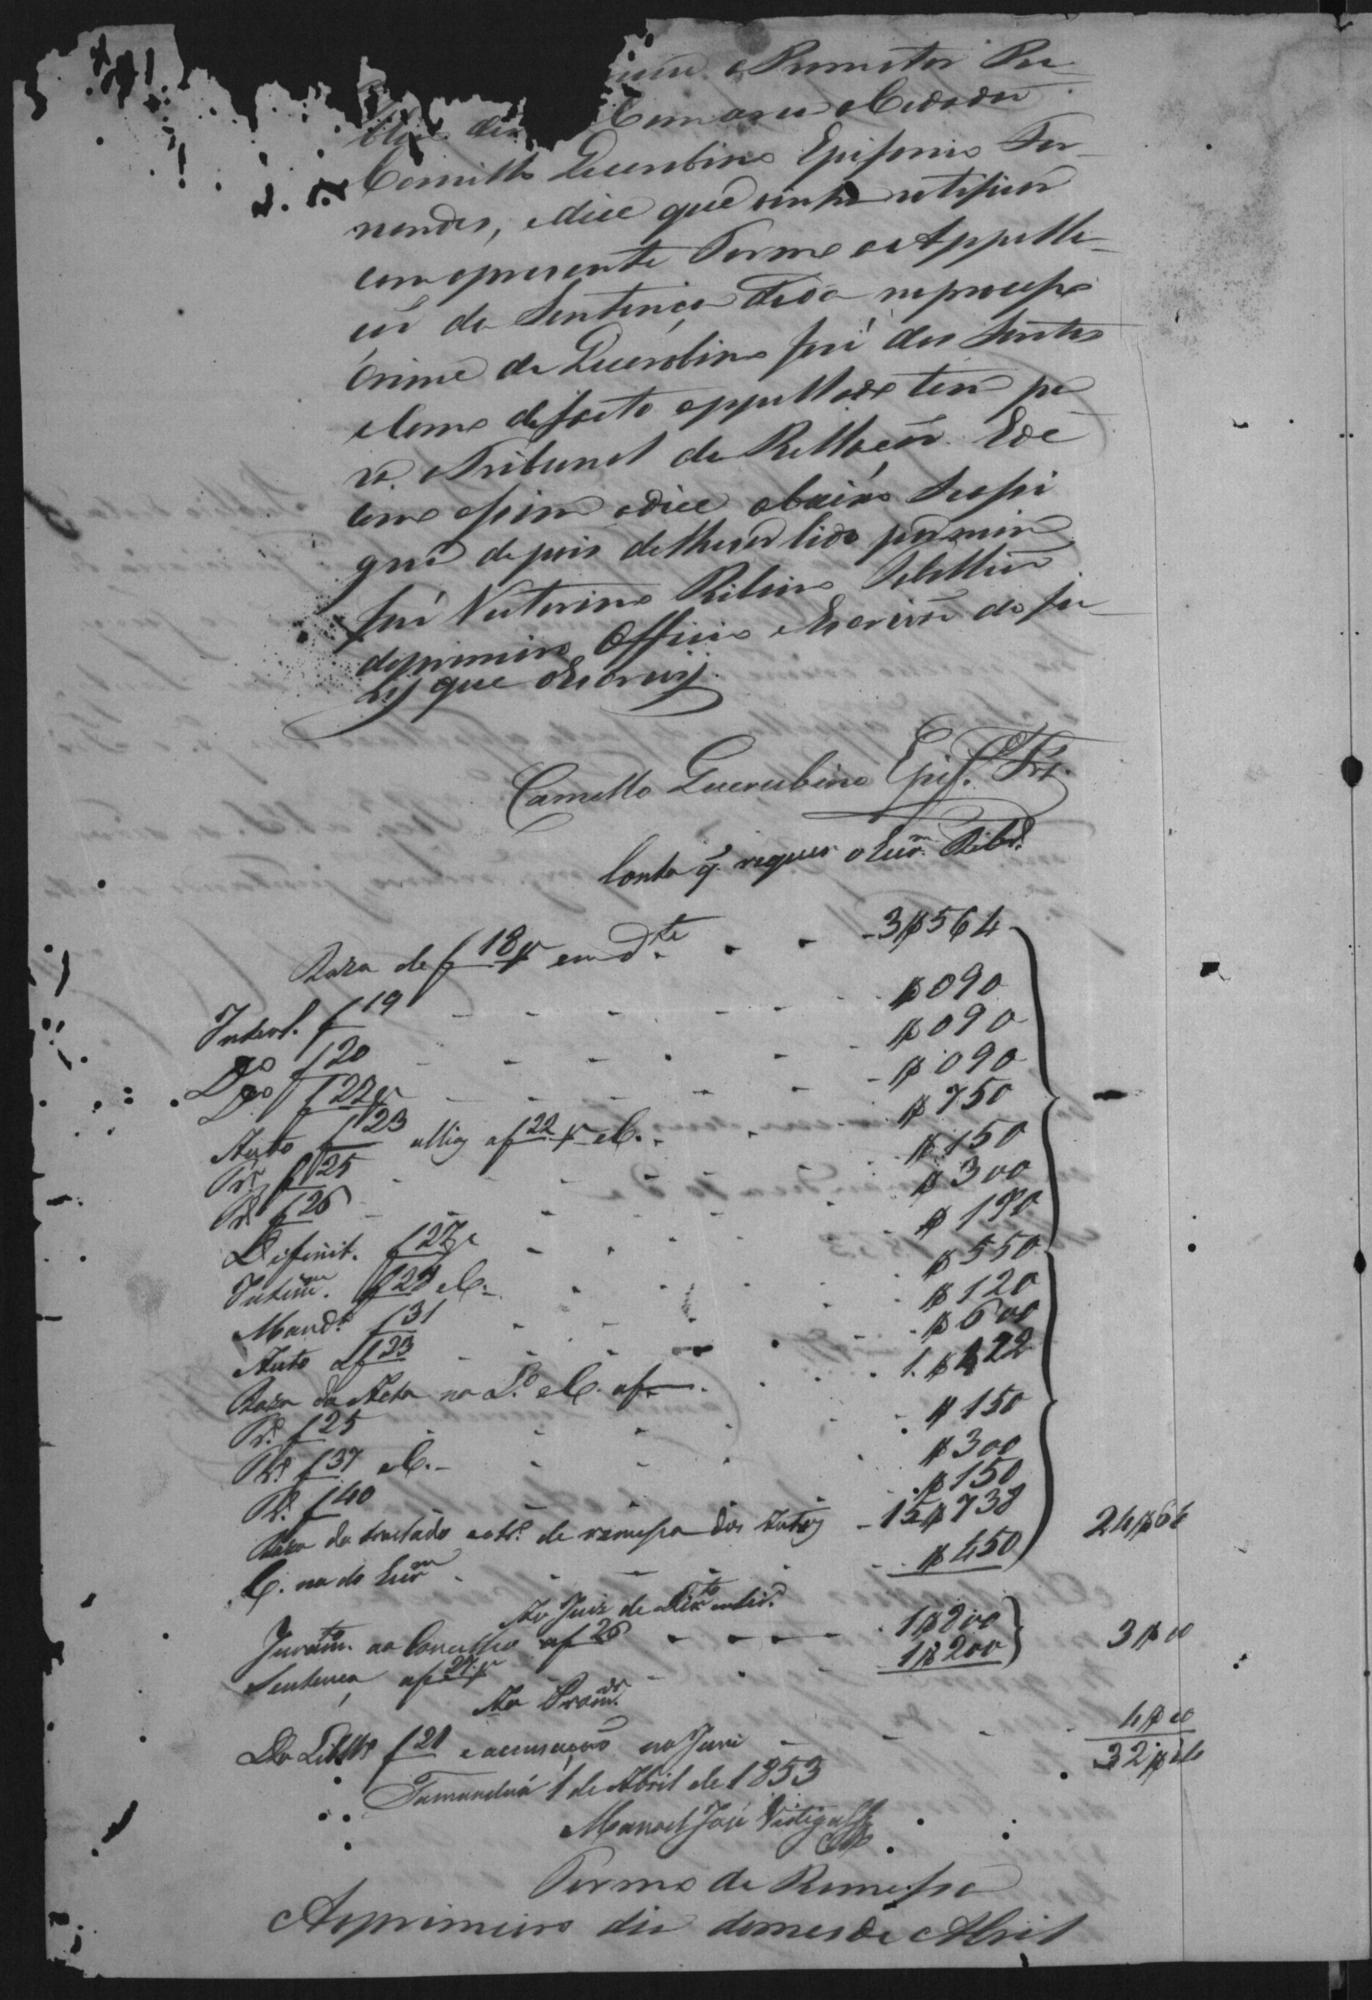 o Promotor Pu-
blico des Comarca o Cidadão
Camillo Querubino Epifanio Fer-
nandes, e dice que vinha retificar
com o presente Termo a Appella-
ção da Sentença dada no processo
crime de Querobino José dos Santos
e como de facto appellado tem pa
ra o Tribunal da Rellação. E de
como assim o dice abaixo se assi
gna depois de lhe ser lido por mim
José Victorino Ribeiro Tabellião
do primeiro Officio e Escrivão do Ju-
ry que o Escrevy
Camello Querubino Epif.º Frz.
Conta q̃. requer o Escr.m Ribr.º
Raza de f 18 v em d.te - 3$564
Interl. f 19 $090
D.º f 20 $090
D.º f 22 v $090
Auto f 23 alliaz a f 22 v e C. $750
Pr.º f 25 $150
P.º f 26 $300
Difinit. f 27 v $190
Intim.m f 29 e C. $550
Mand.º f 31 $120
Auto a f 23 $600
Raza da Acta no L.º e C. a f 1.$422
Pr.º f 25 $150
Pr.º f 37 e C. $300
Pr.º f 40 $150
Raza do traslado e otr.º de remessa dos Autos - 15$738
C. na do Escr.m $450 24$
Ao Juiz de Dir.to
Juram.to ao Concelho a f 26 1$200
Sentença a f 27 v 1$200 3$
Ao Prom.or
Do Libello f 21 e accusação no Jury 4$
32$
Tamanduá 1 de Abril de 1853
Manoel José
Termo de Remessa
Ao primeiro dia do mes de Abril